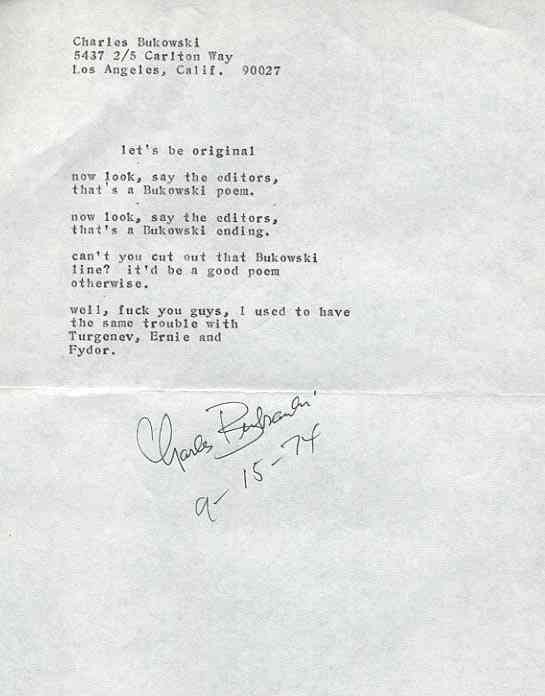 Charles Bukowski
5437 2/5 Carlton Way
Los Angeles, Calif. 90027
let's be original
now look, say the editors,
that's a Bukowski poem.
now look, say the editors,
that's a Bukowski ending.
can't you cut out that Bukowski
line? it'd be a good poem
otherwise.
well, fuck you guys, I used to have
the same trouble with
Turgenev, Ernie and
Fydor.
Charles Bukowski
9-15-74